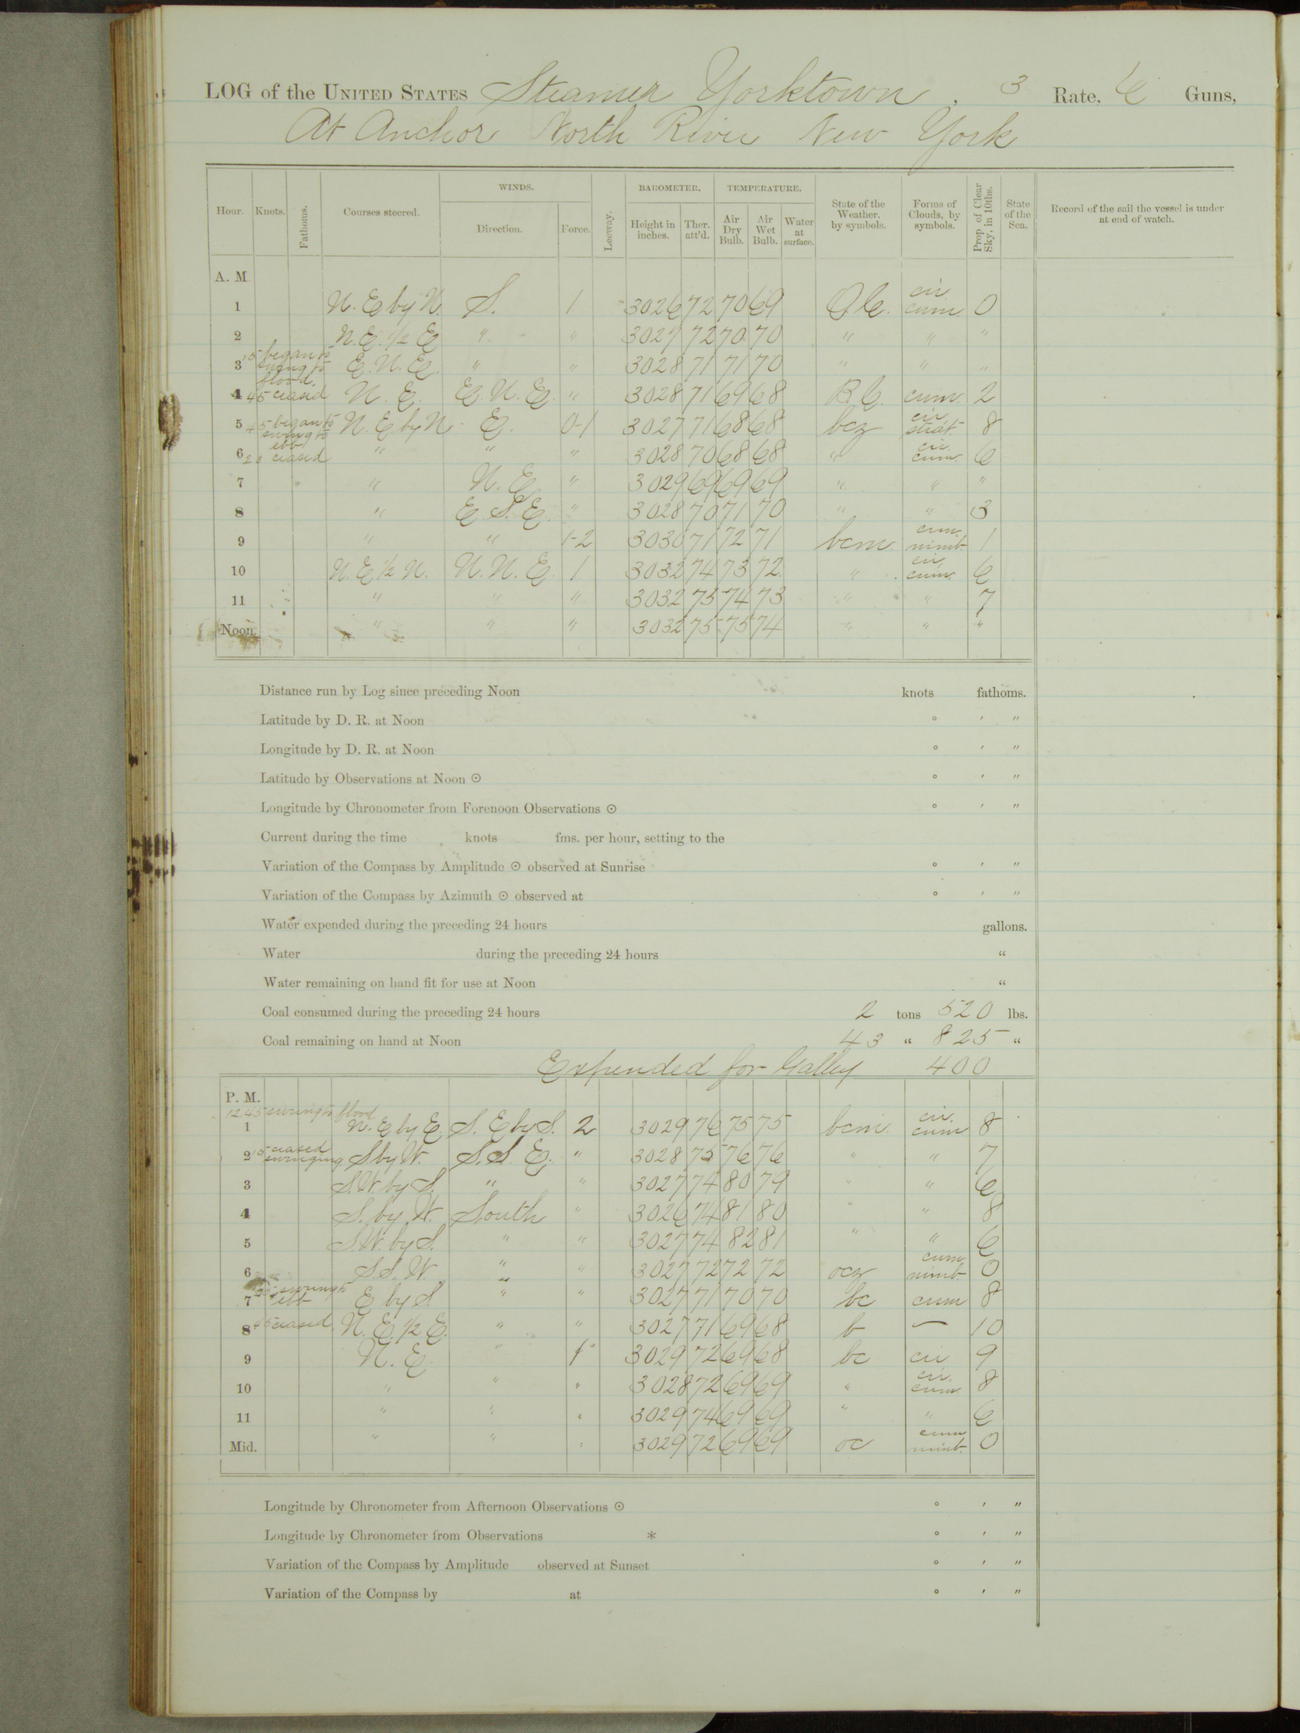 LOG of the UNITED STATES Steamer Yorktown, 3 Rate, 6 Guns,
At Anchor North River New York
Hour. Knots. Fathoms. Courses steered. WINDS. Direction. Force. Leeway. BAROMETER. Height in inches. Ther. att'd. TEMPERATURE. Air Dry Bulb. Air Wet Bulb. Water at surface. State of the Weather, by symbols. Forms of Clouds, by symbols. Prop. of Clear Sky, in 10ths. State of the Sea. Record of the sail the vessel is under at end of watch.
A. M.
1 N. E by N. S. 1 3026 72 70 69 O.C. cir. cum 0
2 N. E. 1/2 E " " 3027 72 70 70 " " "
3 15 began to swing to flood. E. N. E. " " 3028 71 71 70 " " "
4 45 ceased N. E. E. N. E. " 3028 71 69 68 B.C. cum 2
5 45 began to swing to ebb N. E by N. E. 0-1 3027 71 68 68 bcz cir. strat 8
6 20 ceased " " " 3028 70 68 68 " cir. cum. 6
7 " N. E. " 3029 69 69 69 " " "
8 " E. S. E. " 3028 70 71 70 " " 3
9 " " 1-2 3030 71 72 71 bcm cum. nimb 1
10 N. E 1/2 N. N. N. E. 1 3032 74 73 72 " cir. cum. 6
11 " " " 3032 75 74 73 " " 7
Noon " " " 3032 75 75 74 " " "
Distance run by Log since preceding Noon knots fathoms.
Latitude by D. R. at Noon ° ′ ″
Longitude by D. R. at Noon ° ′ ″
Latitude by Observations at Noon ⊙ ° ′ ″
Longitude by Chronometer from Forenoon Observations ⊙ ° ′ ″
Current during the time knots fms. per hour, setting to the
Variation of the Compass by Amplitude ⊙ observed at Sunrise ° ′ ″
Variation of the Compass by Azimuth ⊙ observed at ° ′ ″
Water expended during the preceding 24 hours gallons.
Water during the preceding 24 hours “
Water remaining on hand fit for use at Noon “
Coal consumed during the preceding 24 hours 2 tons 520 lbs.
Coal remaining on hand at Noon 43 “ 825 “
Expended for Galley 400
P. M.
12 45 swung to flood
1 N. E by E S. E by S. 2 3029 76 75 75 bcm cir. cum 8
2 15 ceased swinging S by W. S. S. E. " 3028 75 76 76 " " 7
3 S. W. by S. " " 3027 74 80 79 " " 6
4 S. by W. South " 3026 74 81 80 " " 8
5 S. W. by S. " " 3027 74 82 81 " " 6
6 S. S. W. " " 3027 72 72 72 ocz cum nimb 0
7 swung to ebb E by S " " 3027 71 70 70 bc cum 8
8 45 ceased N. E 1/2 E. " " 3027 71 69 68 b — 10
9 N. E. " 1 3029 72 69 68 bc cir 9
10 " " " 3028 72 69 69 " cir. cum 8
11 " " " 3029 74 69 69 " " 6
Mid. " " " 3029 72 69 69 oc cum nimb. 0
Longitude by Chronometer from Afternoon Observations ⊙ ° ′ ″
Longitude by Chronometer from Observations * ° ′ ″
Variation of the Compass by Amplitude observed at Sunset ° ′ ″
Variation of the Compass by at ° ′ ″